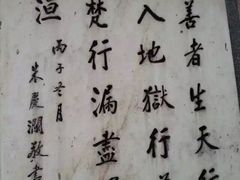 善者生天行
入地獄行
梵行漏盡
洹
丙子冬月
朱慶瀾敬書